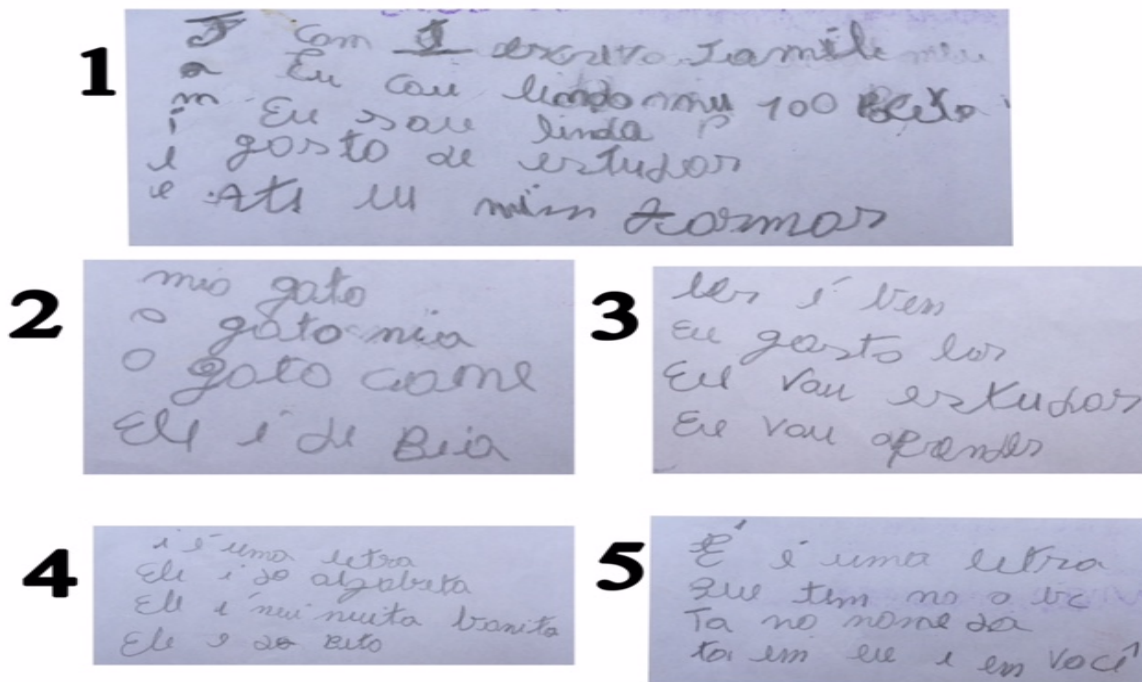 1
J com J escrevo Jamile meu
a Eu cou lindo miu 100 Beito
m Eu sou linda
i gosto de estudar
l Ate eu mim formar
e
2
mio gato
o gato mia
o gato come
Ele é de Beia
3
ler é bem
Eu gosto ler
Eu vou estudar
Eu vou aprender
4
i é uma letra
Ele é do alfabeta
Ele é nui nuita bonita
Ele é do Beto
5
É é uma letra
que tem no a bc
Ta no nome da
ta em eu e em você